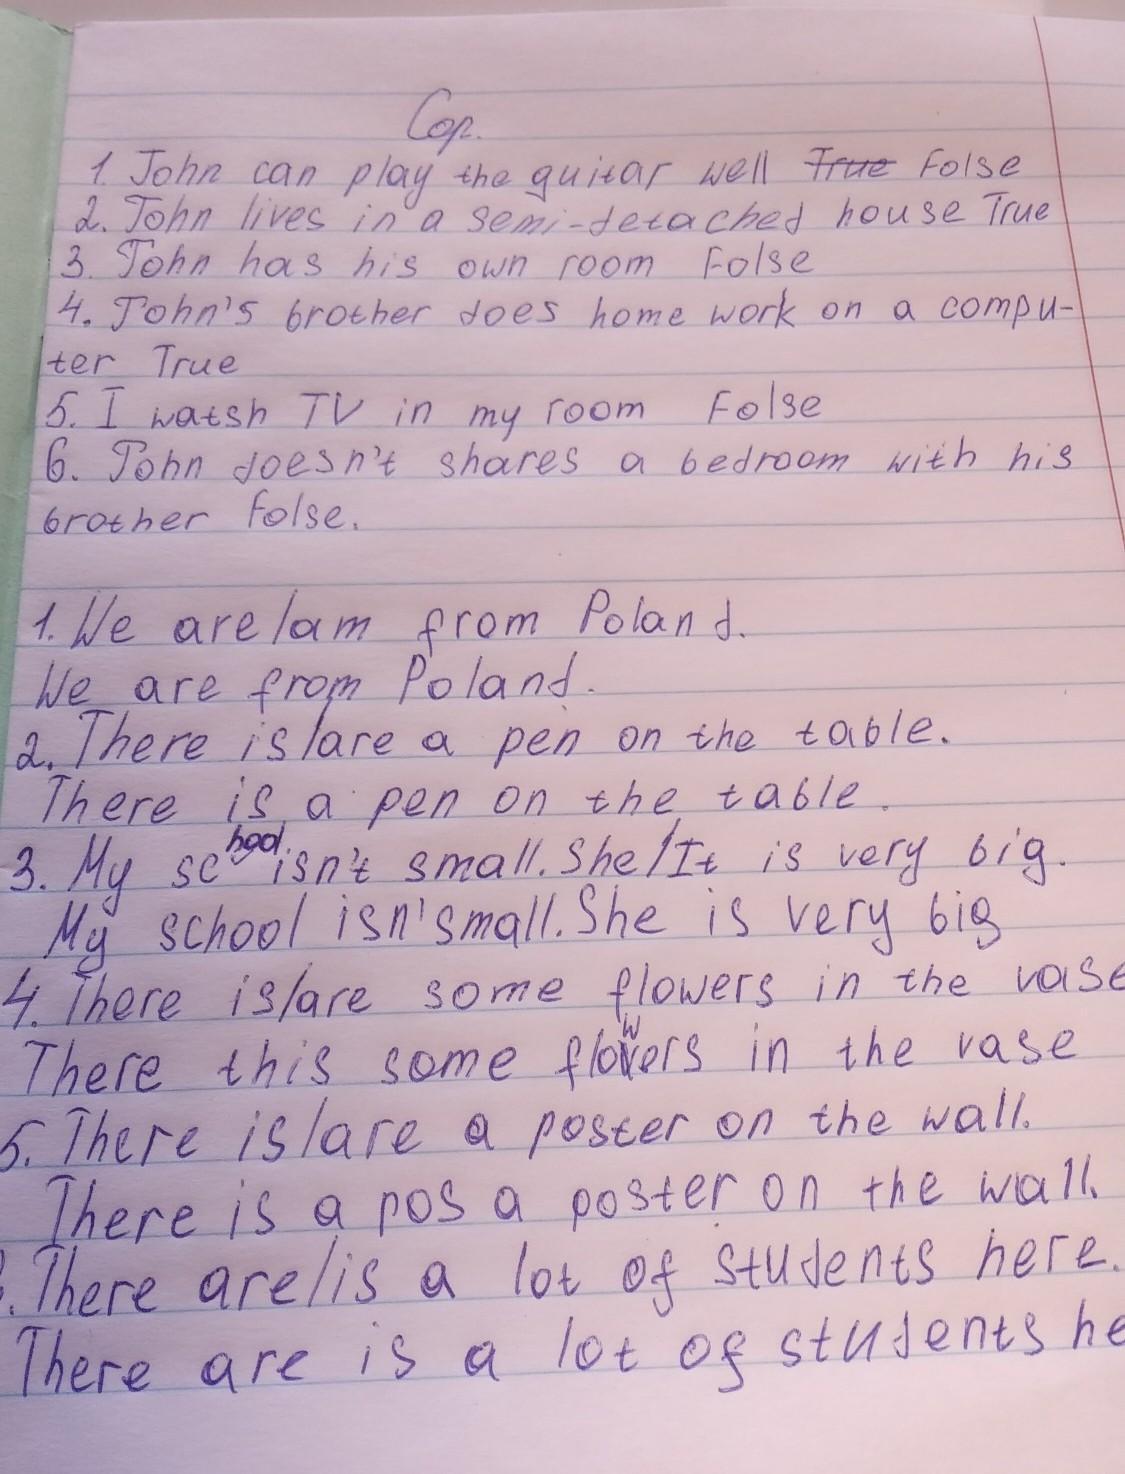 Cor.
1. John can play the guitar well True Folse
2. John lives in a semi-detached house True
3. John has his own room Folse
4. John's brother does home work on a compu-
ter True
5. I watsh TV in my room Folse
6. John doesn't shares a bedroom with his
brother Folse.
1. We are/am from Poland.
We are from Poland.
2. There is/are a pen on the table.
There is a pen on the table.
3. My school isn't small. She/It is very big.
My school isn'small. She is very big
4. There is/are some flowers in the vase
There this some flowers in the vase
5. There is/are a poster on the wall.
There is a pos a poster on the wall.
. There are/is a lot of students here.
There are is a lot of students he